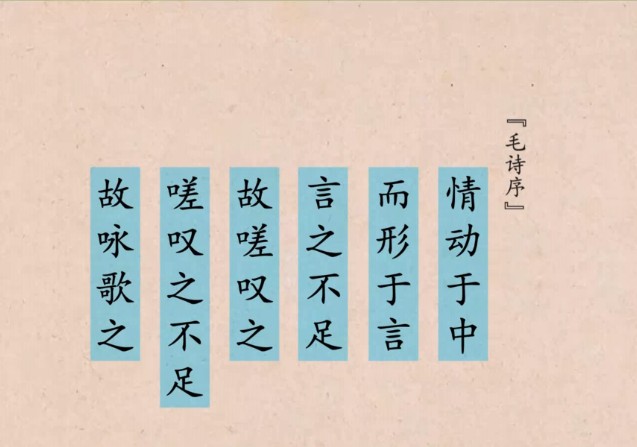 『毛诗序』
情动于中
而形于言
言之不足
故嗟叹之
嗟叹之不足
故咏歌之